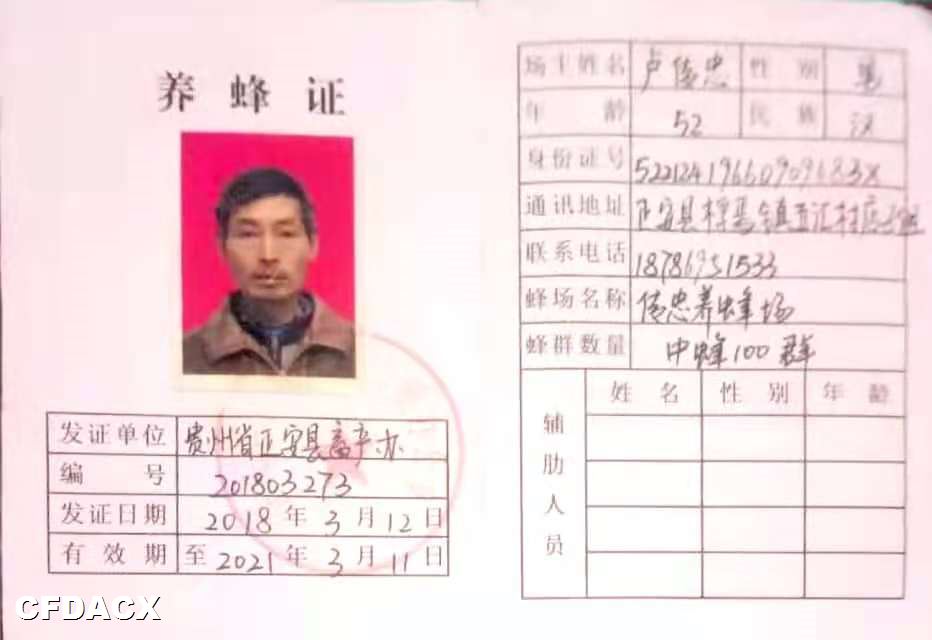 养蜂证
发证单位 贵州省正安县畜产办
编号 201803273
发证日期 2018年3月12日
有效期 至2021年3月11日
场主姓名 卢传忠 性别 男
年龄 52 民族 汉
身份证号
通讯地址 正安县 镇 村
联系电话
蜂场名称 传忠养蜂场
蜂群数量 中蜂100群
辅肋人员 姓名 性别 年龄
CFDACX